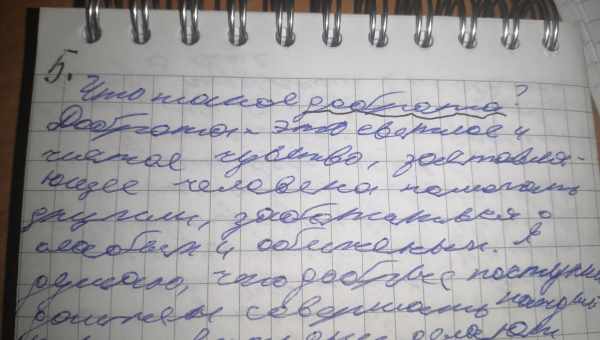 5.
Что такое доброта?
Доброта - это светлое и
чистое чувство, заставля-
ющее человека помогать
другим, заботиться о
слабых и обиженных. Я
думаю, что добрые поступки
должен совершать каждый